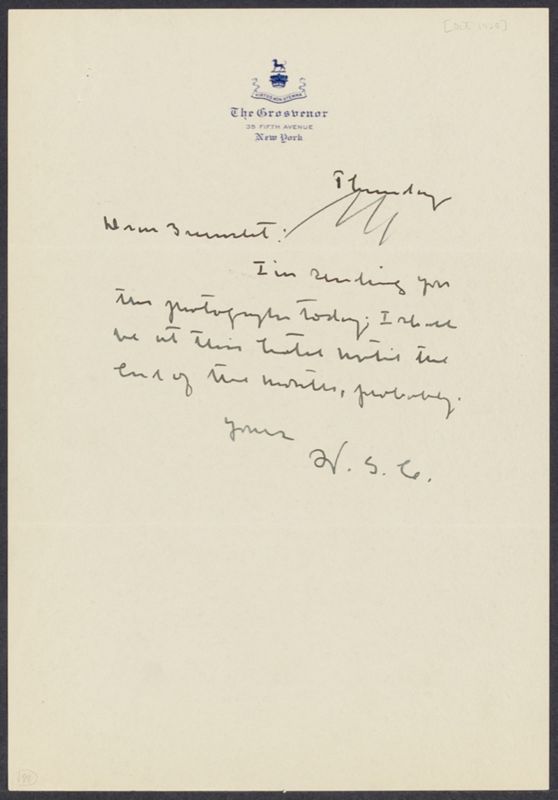 The Grosvenor
35 FIFTH AVENUE
New York
Thursday
Dear
I'm sending you
the photographs today; I shall
be at this hotel until the
end of the month, probably.
Yours
W. S. C.